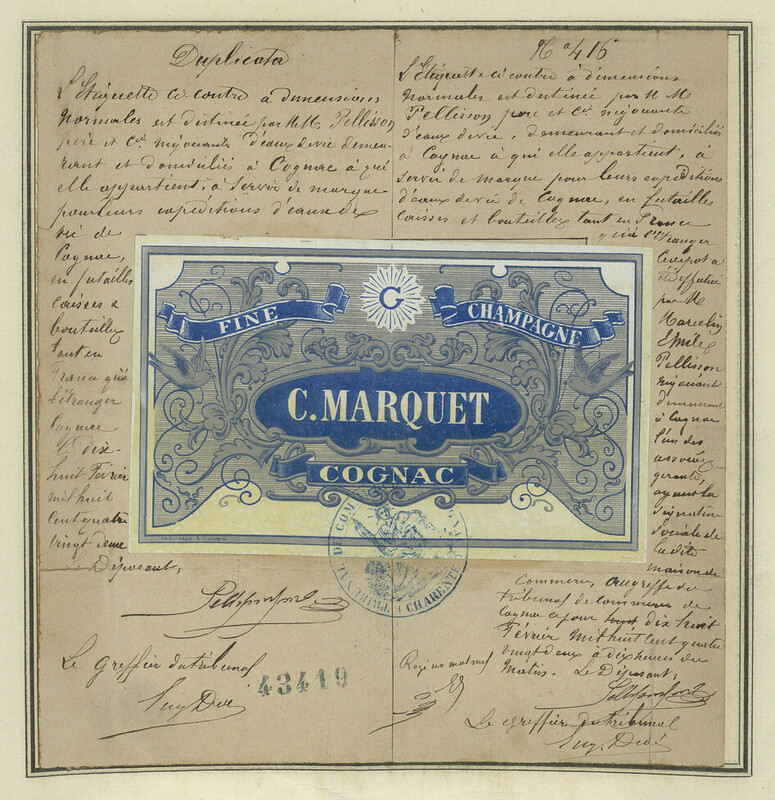 Duplicata
L'Etiquette ci contre à dimensions
normales est destinée par M.M. Pellisson
père et Cie négociants d'eaux de vie demeu-
rant et domiciliés à Cognac à qui
elle appartient, à servir de marque
pour leurs expéditions d'eaux de
vie de
Cognac,
en futailles
caisses &
bouteilles
tant en
France qu'à
l'étranger
Cognac
le dix-
huit Février
mil huit
cent quatre
vingt deux
Le Déposant,
Le greffier du tribunal
43419
No 416
L'Etiquette ci contre à dimensions
normales est destinée par M M
Pellisson père et Cie négociants
d'eaux de vie, demeurant et domiciliés
à Cognac à qui elle appartient, à
servir de marque pour leurs expéditions
d'eaux de vie de Cognac, en futailles
caisses et bouteilles tant en France
qu'à l'Etranger
Le dépôt a
été effectué
par M
Marcelin
Emile
Pellisson
négociant
demeurant
à Cognac
l'un des
associés
gérants,
ayant la
signature
sociale de
la dite
maison de
commerce, au greffe du
tribunal de commerce de
Cognac ce jour dix huit
Février mil huit cent quatre
vingt deux à dix heures du
matin. Le Déposant,
Le greffier du tribunal
FINE
C
CHAMPAGNE
C. MARQUET
COGNAC
TRIBUNAL DE COM
CHARENTE